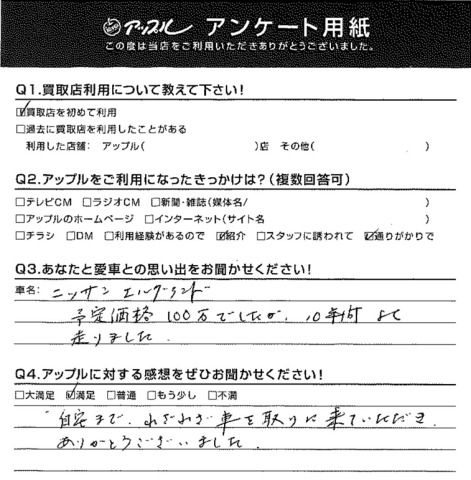 アップル アンケート用紙
この度は当店をご利用いただきありがとうございました。
Q1.買取店利用について教えて下さい!
☑買取店を初めて利用
□過去に買取店を利用したことがある
利用した店舗: アップル( )店 その他( )
Q2.アップルをご利用になったきっかけは?(複数回答可)
□テレビCM □ラジオCM □新聞・雑誌(媒体名/ )
□アップルのホームページ □インターネット(サイト名 )
□チラシ □DM □利用経験があるので ☑紹介 □スタッフに誘われて ☑通りがかりで
Q3.あなたと愛車との思い出をお聞かせください!
車名: ニッサン エルグランド
予定価格 100万でしたが、10年 よく
走りました
Q4.アップルに対する感想をぜひお聞かせください!
□大満足 ☑満足 □普通 □もう少し □不満
自宅まで、わざわざ車を取りに来ていただき、
ありがとうございました。